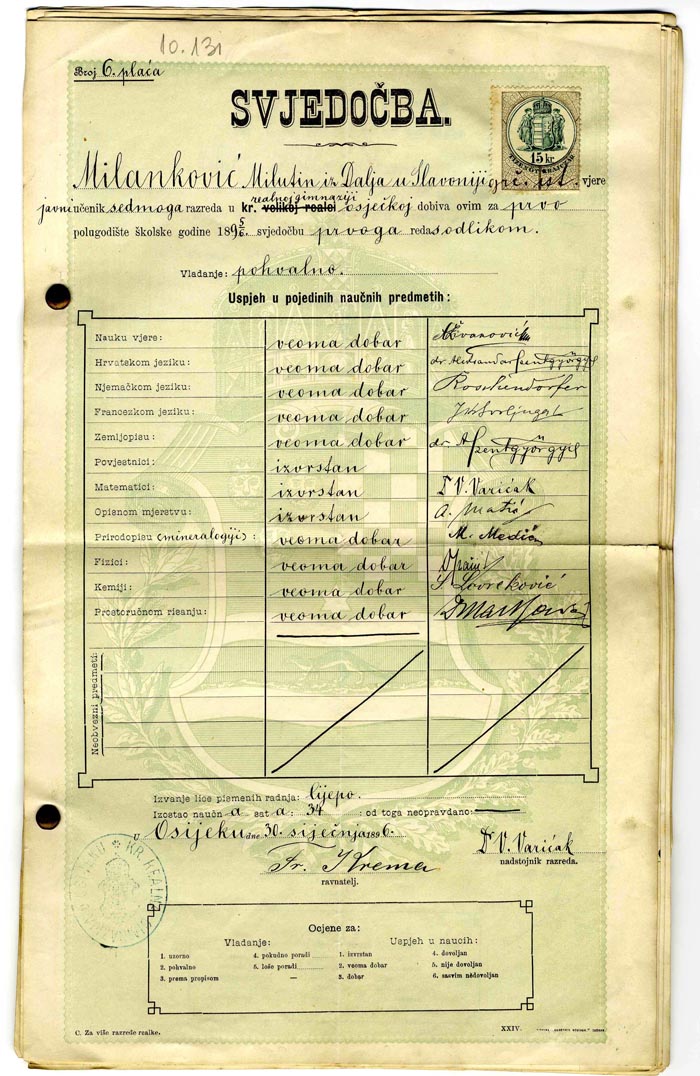 10.131
Broj 6. plaća
SVJEDOČBA.
15 kr.
Milanković Milutin iz Dalja u Slavoniji grč. ist. vjere
javni učenik sedmoga razreda u kr. velikoj realci realnoj gimnaziji osječkoj dobiva ovim za prvo
polugodište školske godine 1895/6. svjedočbu prvoga reda s odlikom.
Vladanje: pohvalno.
Uspjeh u pojedinih naučnih predmetih:
Nauku vjere: veoma dobar
Hrvatskom jeziku: veoma dobar dr. Aleksandar Szentgyörgyi
Njemačkom jeziku: veoma dobar
Francezkom jeziku: veoma dobar
Zemljopisu: veoma dobar dr. A Szentgyörgyi
Povjestnici: izvrstan
Matematici: izvrstan Dr V. Varićak
Opisnom mjerstvu: izvrstan A. Matić
Prirodopisu (mineralogiji): veoma dobar M. Medić
Fizici: veoma dobar
Kemiji: veoma dobar S Lovreković
Prostoručnom risanju: veoma dobar
Neobvezni predmeti:
Izvanje lice pismenih radnja: lijepo.
Izostao naučna sata: 34 od toga neopravdano:
U Osijeku dne 30. siječnja 1896.
Fr. Krema
ravnatelj.
Dr V. Varićak
nadstojnik razreda.
Ocjene za:
Vladanje: Uspjeh u naucih:
1. uzorno 4. pokudno poradi 1. izvrstan 4. dovoljan
2. pohvalno 5. loše poradi 2. veoma dobar 5. nije dovoljan
3. prema propisom — 3. dobar 6. sasvim nedovoljan
C. Za više razrede realke. XXIV.